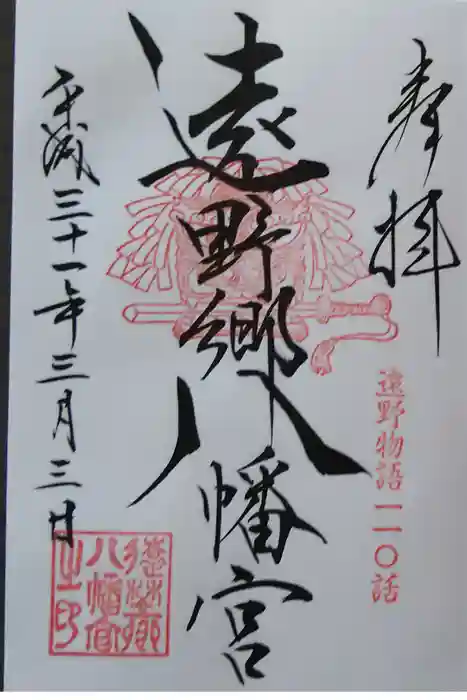 奉拝
遠野物語一一〇話
遠野郷八幡宮
平成三十一年三月三日
遠野郷
八幡宮
之印